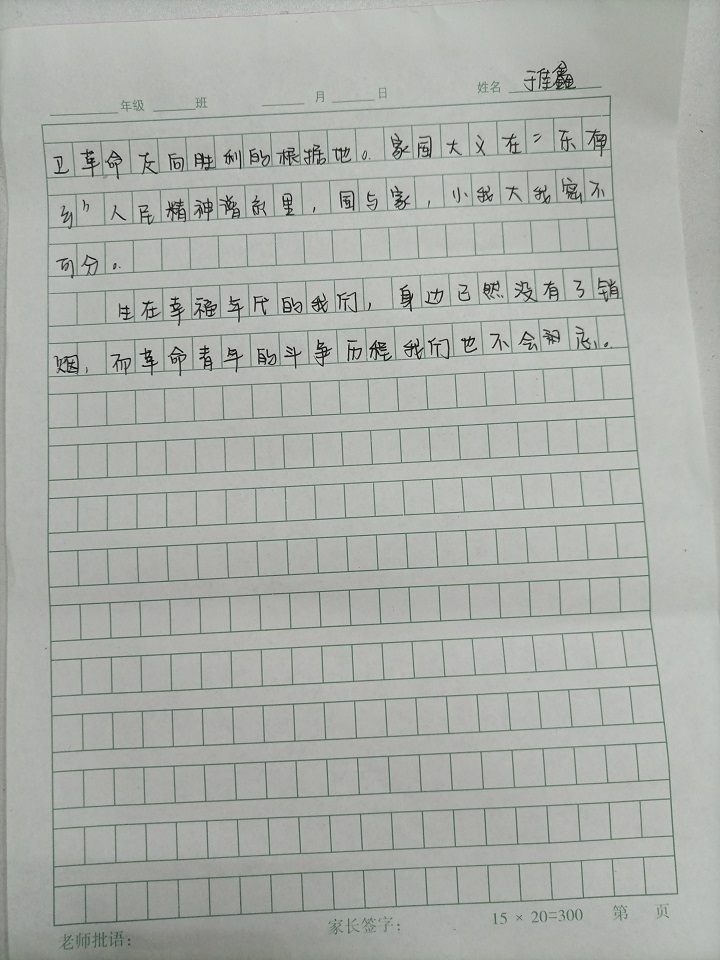 年级 班 月 日 姓名 于佳鑫
卫革命走向胜利的根据地。家国大义在"东神
乡"人民精神潜流里，国与家，小我大我密不
可分。
生在幸福年代的我们，身边已然没有了销
烟，而革命青年的斗争历程我们也不会忘。
老师批语： 家长签字： 15 × 20=300 第 页